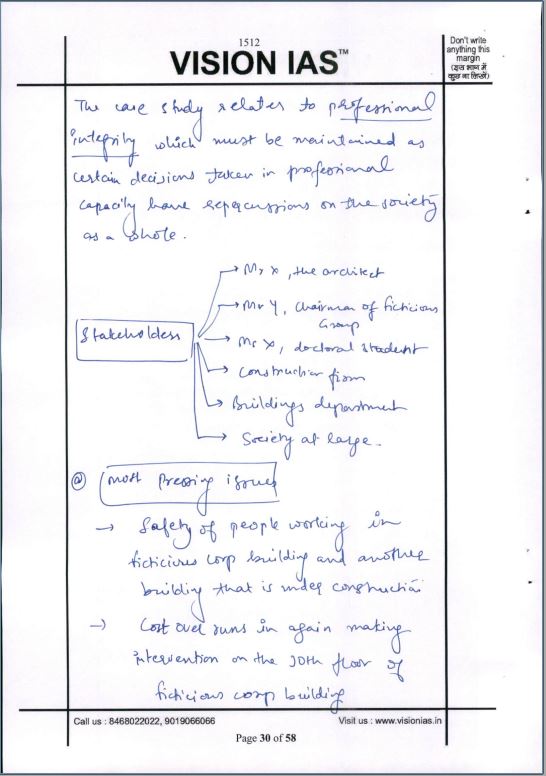 1512
VISION IAS™
Don't write
anything this
margin
(इस भाग में
कुछ ना लिखें)
The case study relates to professional
integrity which must be maintained as
certain decisions taken in professional
capacity have repercussions on the society
as a whole.
Stakeholders
→ Mr X, the architect
→ Mr Y, Chairman of ficticious
Group
→ Mr X, doctoral student
→ Construction firm
→ Buildings department
→ Society at large.
(a) Most Pressing issues
→ Safety of people working in
ficticious corp building and another
building that is under construction
→ Cost over runs in again making
intervention on the 10th floor of
ficticious corp building
Call us : 8468022022, 9019066066
Visit us : www.visionias.in
Page 30 of 58